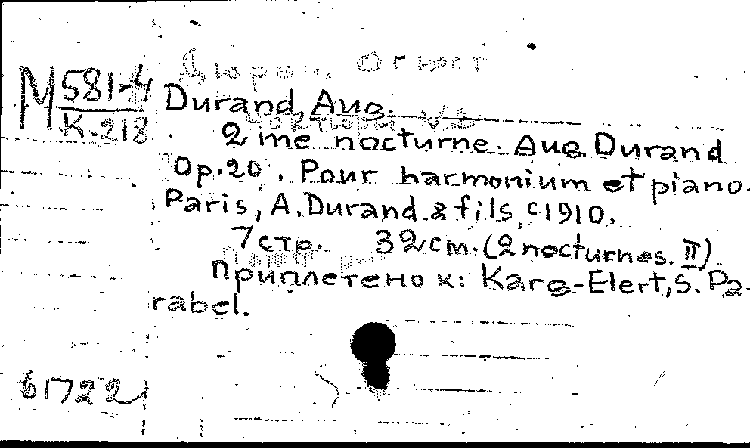 Дюран, Огюст
М 581-4
К-218
Durand, Aug.
2 ime nocturne. Aug. Durand
Op.20. Pour harmonium et piano.
Paris, A. Durand & fils, c1910.
7 стр. 32 см. (2 nocturnes. II)
Приплетено к: Karg-Elert, S. Pa-
rabel.
61722